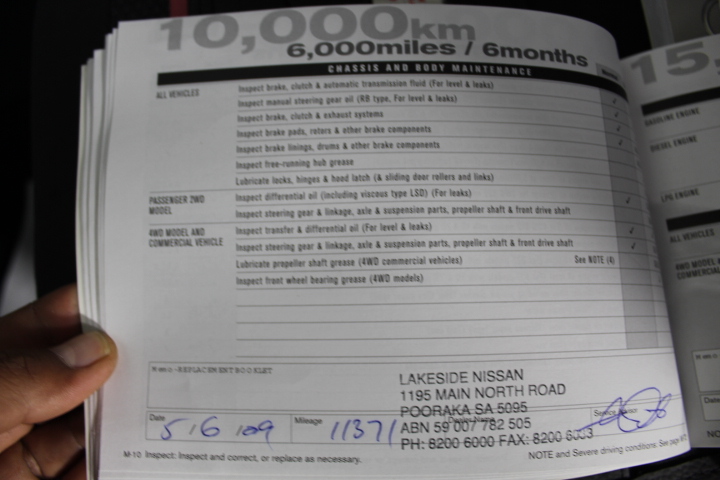 10,000km
6,000miles / 6months
CHASSIS AND BODY MAINTENANCE
ALL VEHICLES
Inspect brake, clutch & automatic transmission fluid (For level & leaks)
Inspect manual steering gear oil (RB type, For level & leaks)
Inspect brake, clutch & exhaust systems
Inspect brake pads, rotors & other brake components
Inspect brake linings, drums & other brake components
Inspect free-running hub grease
Lubricate locks, hinges & hood latch (& sliding door rollers and links)
PASSENGER 2WD MODEL
Inspect differential oil (including viscous type LSD) (For leaks)
Inspect steering gear & linkage, axle & suspension parts, propeller shaft & front drive shaft
4WD MODEL AND COMMERCIAL VEHICLE
Inspect transfer & differential oil (For level & leaks)
Inspect steering gear & linkage, axle & suspension parts, propeller shaft & front drive shaft
Lubricate propeller shaft grease (4WD commercial vehicles) See NOTE (4)
Inspect front wheel bearing grease (4WD models)
Memo - REPLACEMENT BOOKLET
LAKESIDE NISSAN
1195 MAIN NORTH ROAD
POORAKA SA 5095
ABN 59 007 782 505
PH: 8200 6000 FAX: 8200 6003
Date 5/6/09 Mileage 11371
M-10 Inspect: Inspect and correct, or replace as necessary.
NOTE and Severe driving conditions. See page
15,
GASOLINE ENGINE
DIESEL ENGINE
LPG ENGINE
ALL VEHICLES
4WD MODEL
COMMERCIAL